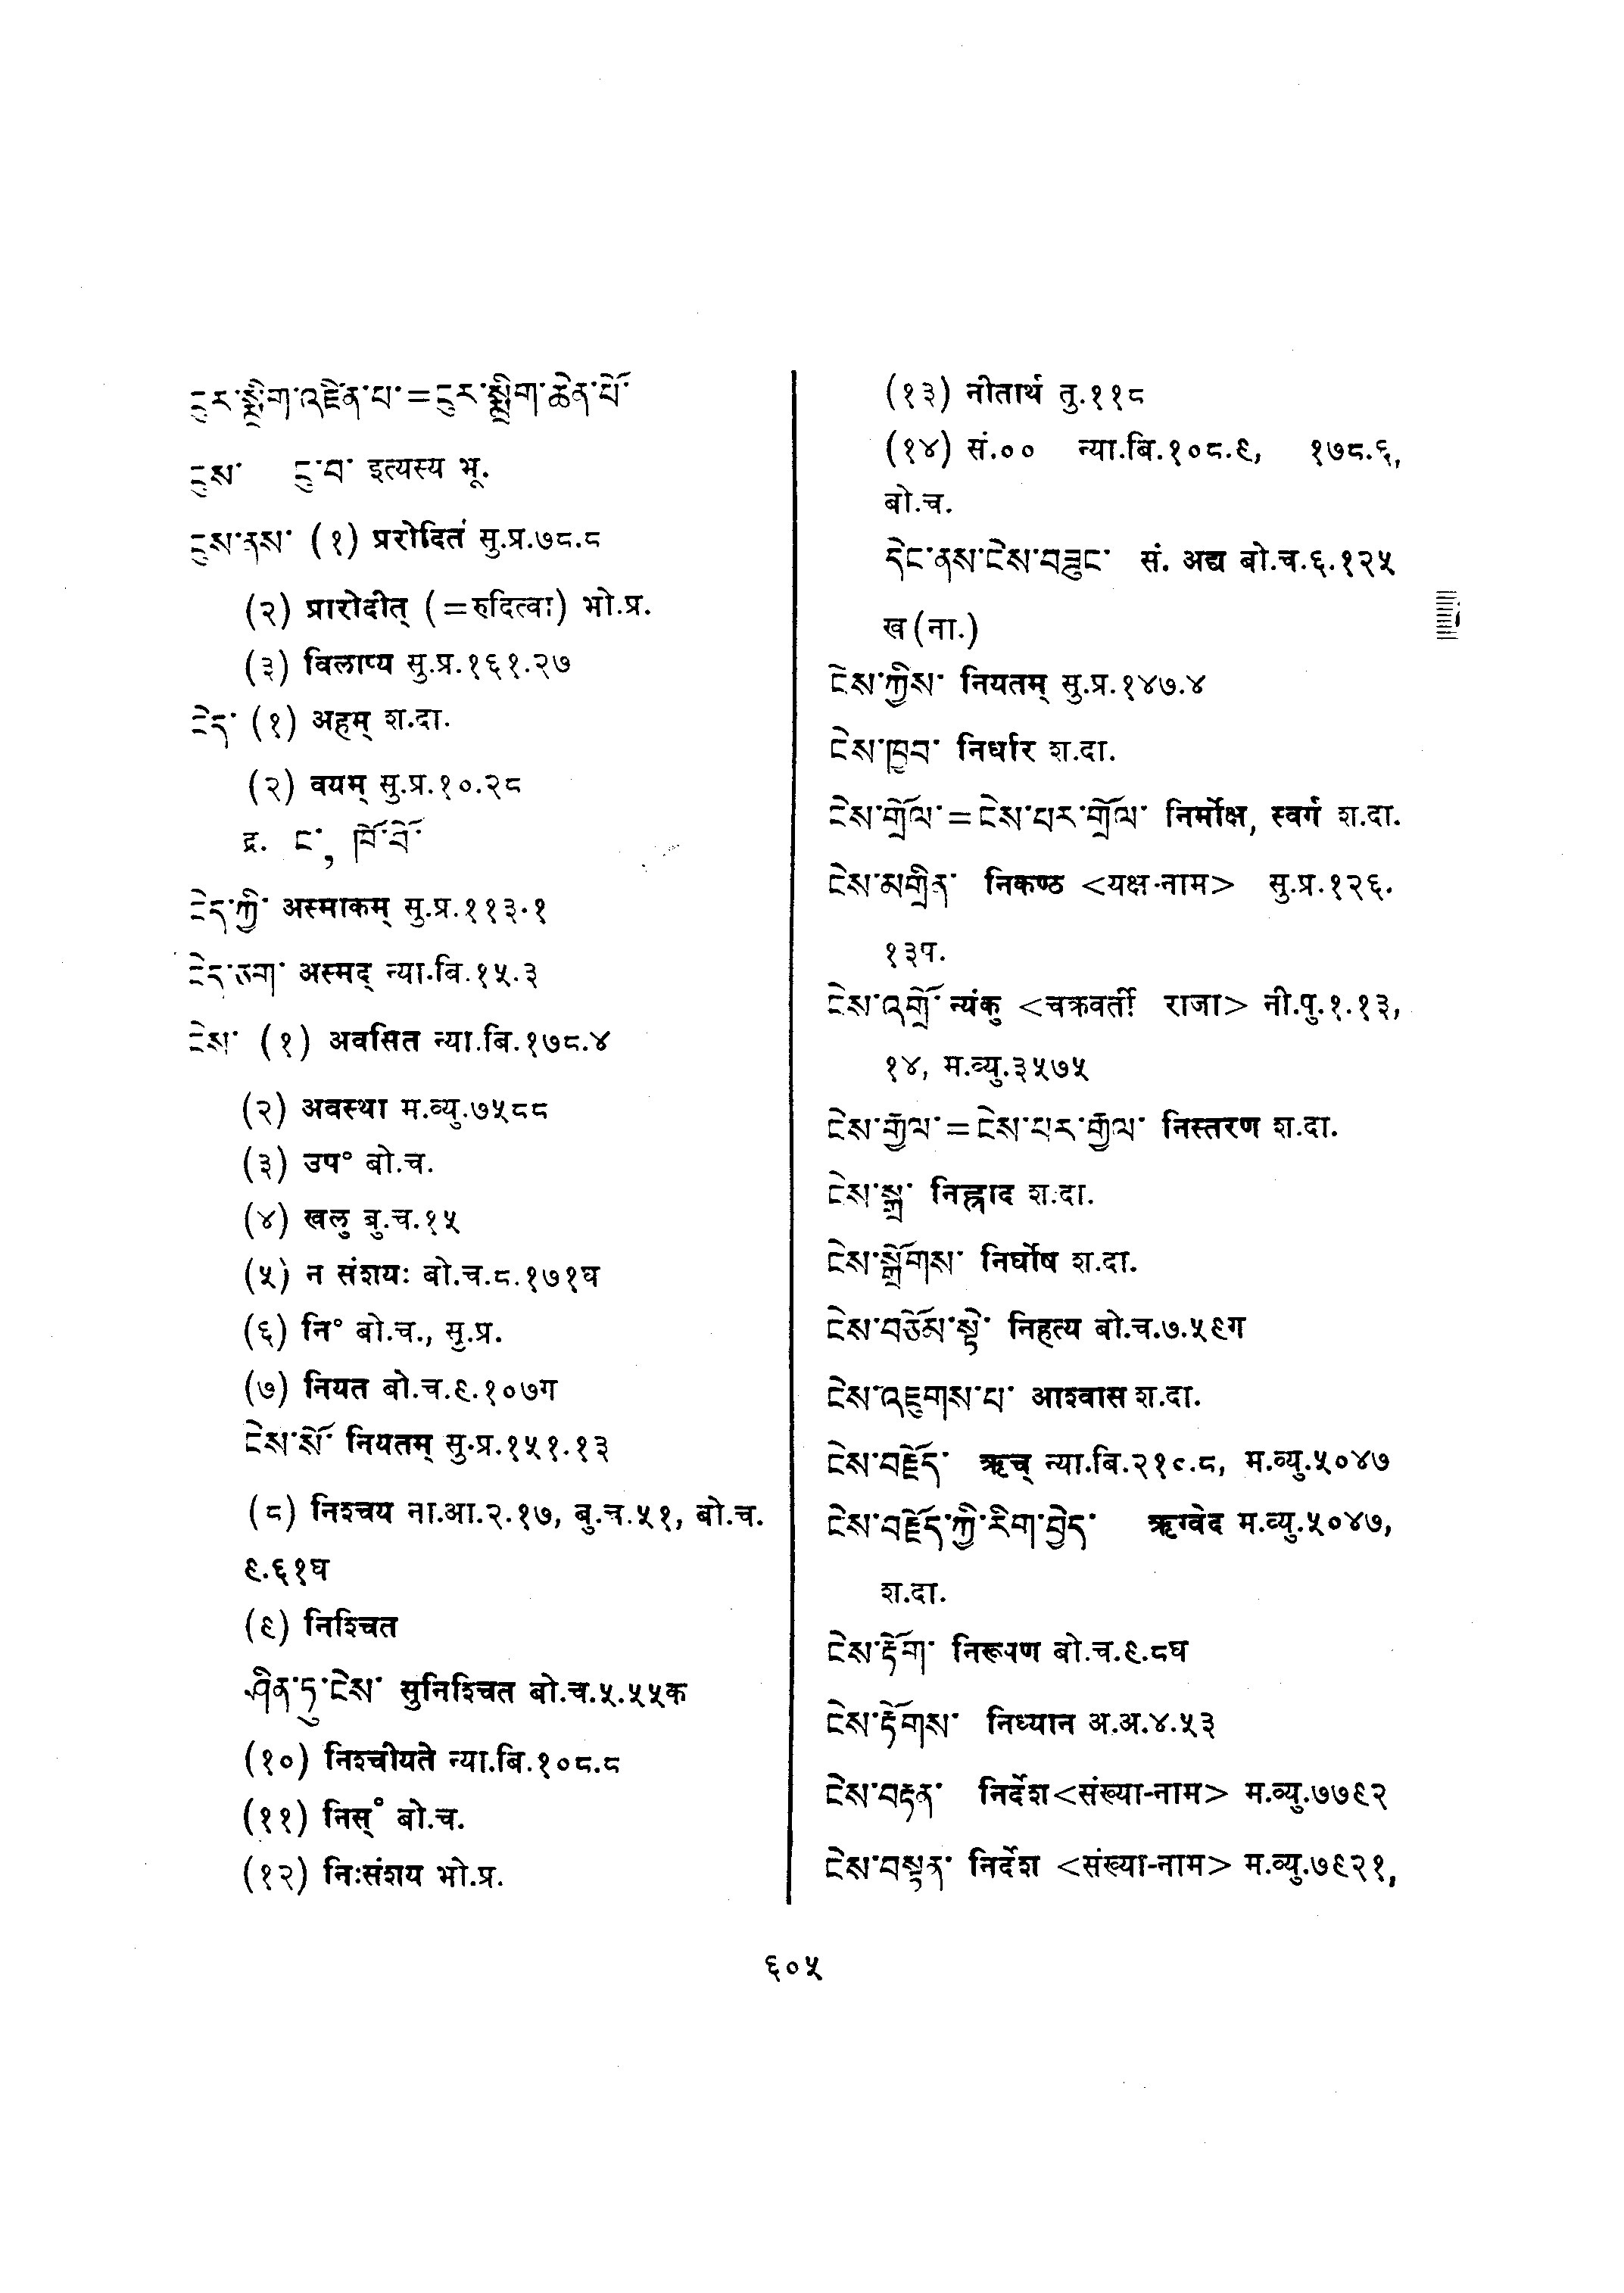 ངུར་སྨྲིག་འཛིན་པ་=ངུར་སྨྲིག་ཆེན་པོ་
ངུས་ ངུ་བ་ इत्यस्य भू.
ངུས་ནས་ (१) प्ररोदितं सु.प्र.७८.८
(२) प्रारोदीत् (=रुदित्वा) भो.प्र.
(३) विलाप्य सु.प्र.१६१.२७
ངེད་ (१) अहम् श.दा.
(२) वयम् सु.प्र.१०.२८
द्र. ང་, ཁོ་བོ་
ངེད་ཀྱི་ अस्माकम् सु.प्र.११३.१
ངེད་ཅག་ अस्मद् न्या.बि.१५.३
ངེས་ (१) अवसित न्या.बि.१७८.४
(२) अवस्था म.व्यु.७५८८
(३) उप° बो.च.
(४) खलु बु.च.१५
(५) न संशयः बो.च.८.१७१घ
(६) नि° बो.च., सु.प्र.
(७) नियत बो.च.९.१०७ग
ངེས་སོ་ नियतम् सु.प्र.१५१.१३
(८) निश्चय ना.आ.२.१७, बु.च.५१, बो.च.
९.६१घ
(९) निश्चित
ཤིན་ཏུ་ངེས་ सुनिश्चित बो.च.५.५५क
(१०) निश्चीयते न्या.बि.१०८.८
(११) निस्° बो.च.
(१२) निःसंशय भो.प्र.
(१३) नीतार्थ तु.११८
(१४) सं.०० न्या.बि.१०८.९, १७८.६,
बो.च.
དེང་ནས་ངེས་བཟུང་ सं. अद्य बो.च.६.१२५
ख (ना.)
ངེས་ཀྱིས་ नियतम् सु.प्र.१४७.४
ངེས་ཁྱབ་ निर्धार श.दा.
ངེས་གྲོལ་=ངེས་པར་གྲོལ་ निर्मोक्ष, स्वर्ग श.दा.
ངེས་མགྲིན་ निकण्ठ <यक्ष-नाम> सु.प्र.१२६.
१३प.
ངེས་འགྲོ་ न्यंकु <चक्रवर्ती राजा> नी.पु.१.१३,
१४, म.व्यु.३५७५
ངེས་རྒྱལ་=ངེས་པར་རྒྱལ་ निस्तरण श.दा.
ངེས་སྒྲ་ निह्नाद श.दा.
ངེས་སྒྲོགས་ निर्घोष श.दा.
ངེས་བཅོམ་སྟེ་ निहत्य बो.च.७.५९ग
ངེས་འཇུགས་པ་ आश्वास श.दा.
ངེས་བརྗོད་ ऋच् न्या.बि.२१९.८, म.व्यु.५०४७
ངེས་བརྗོད་ཀྱི་རིག་བྱེད་ ऋग्वेद म.व्यु.५०४७,
श.दा.
ངེས་རྟོག་ निरूपण बो.च.९.८घ
ངེས་རྟོགས་ निध्यान अ.अ.४.५३
ངེས་བརྟན་ निर्देश<संख्या-नाम> म.व्यु.७७९२
ངེས་བསྟན་ निर्देश <संख्या-नाम> म.व्यु.७९२१,
६०५